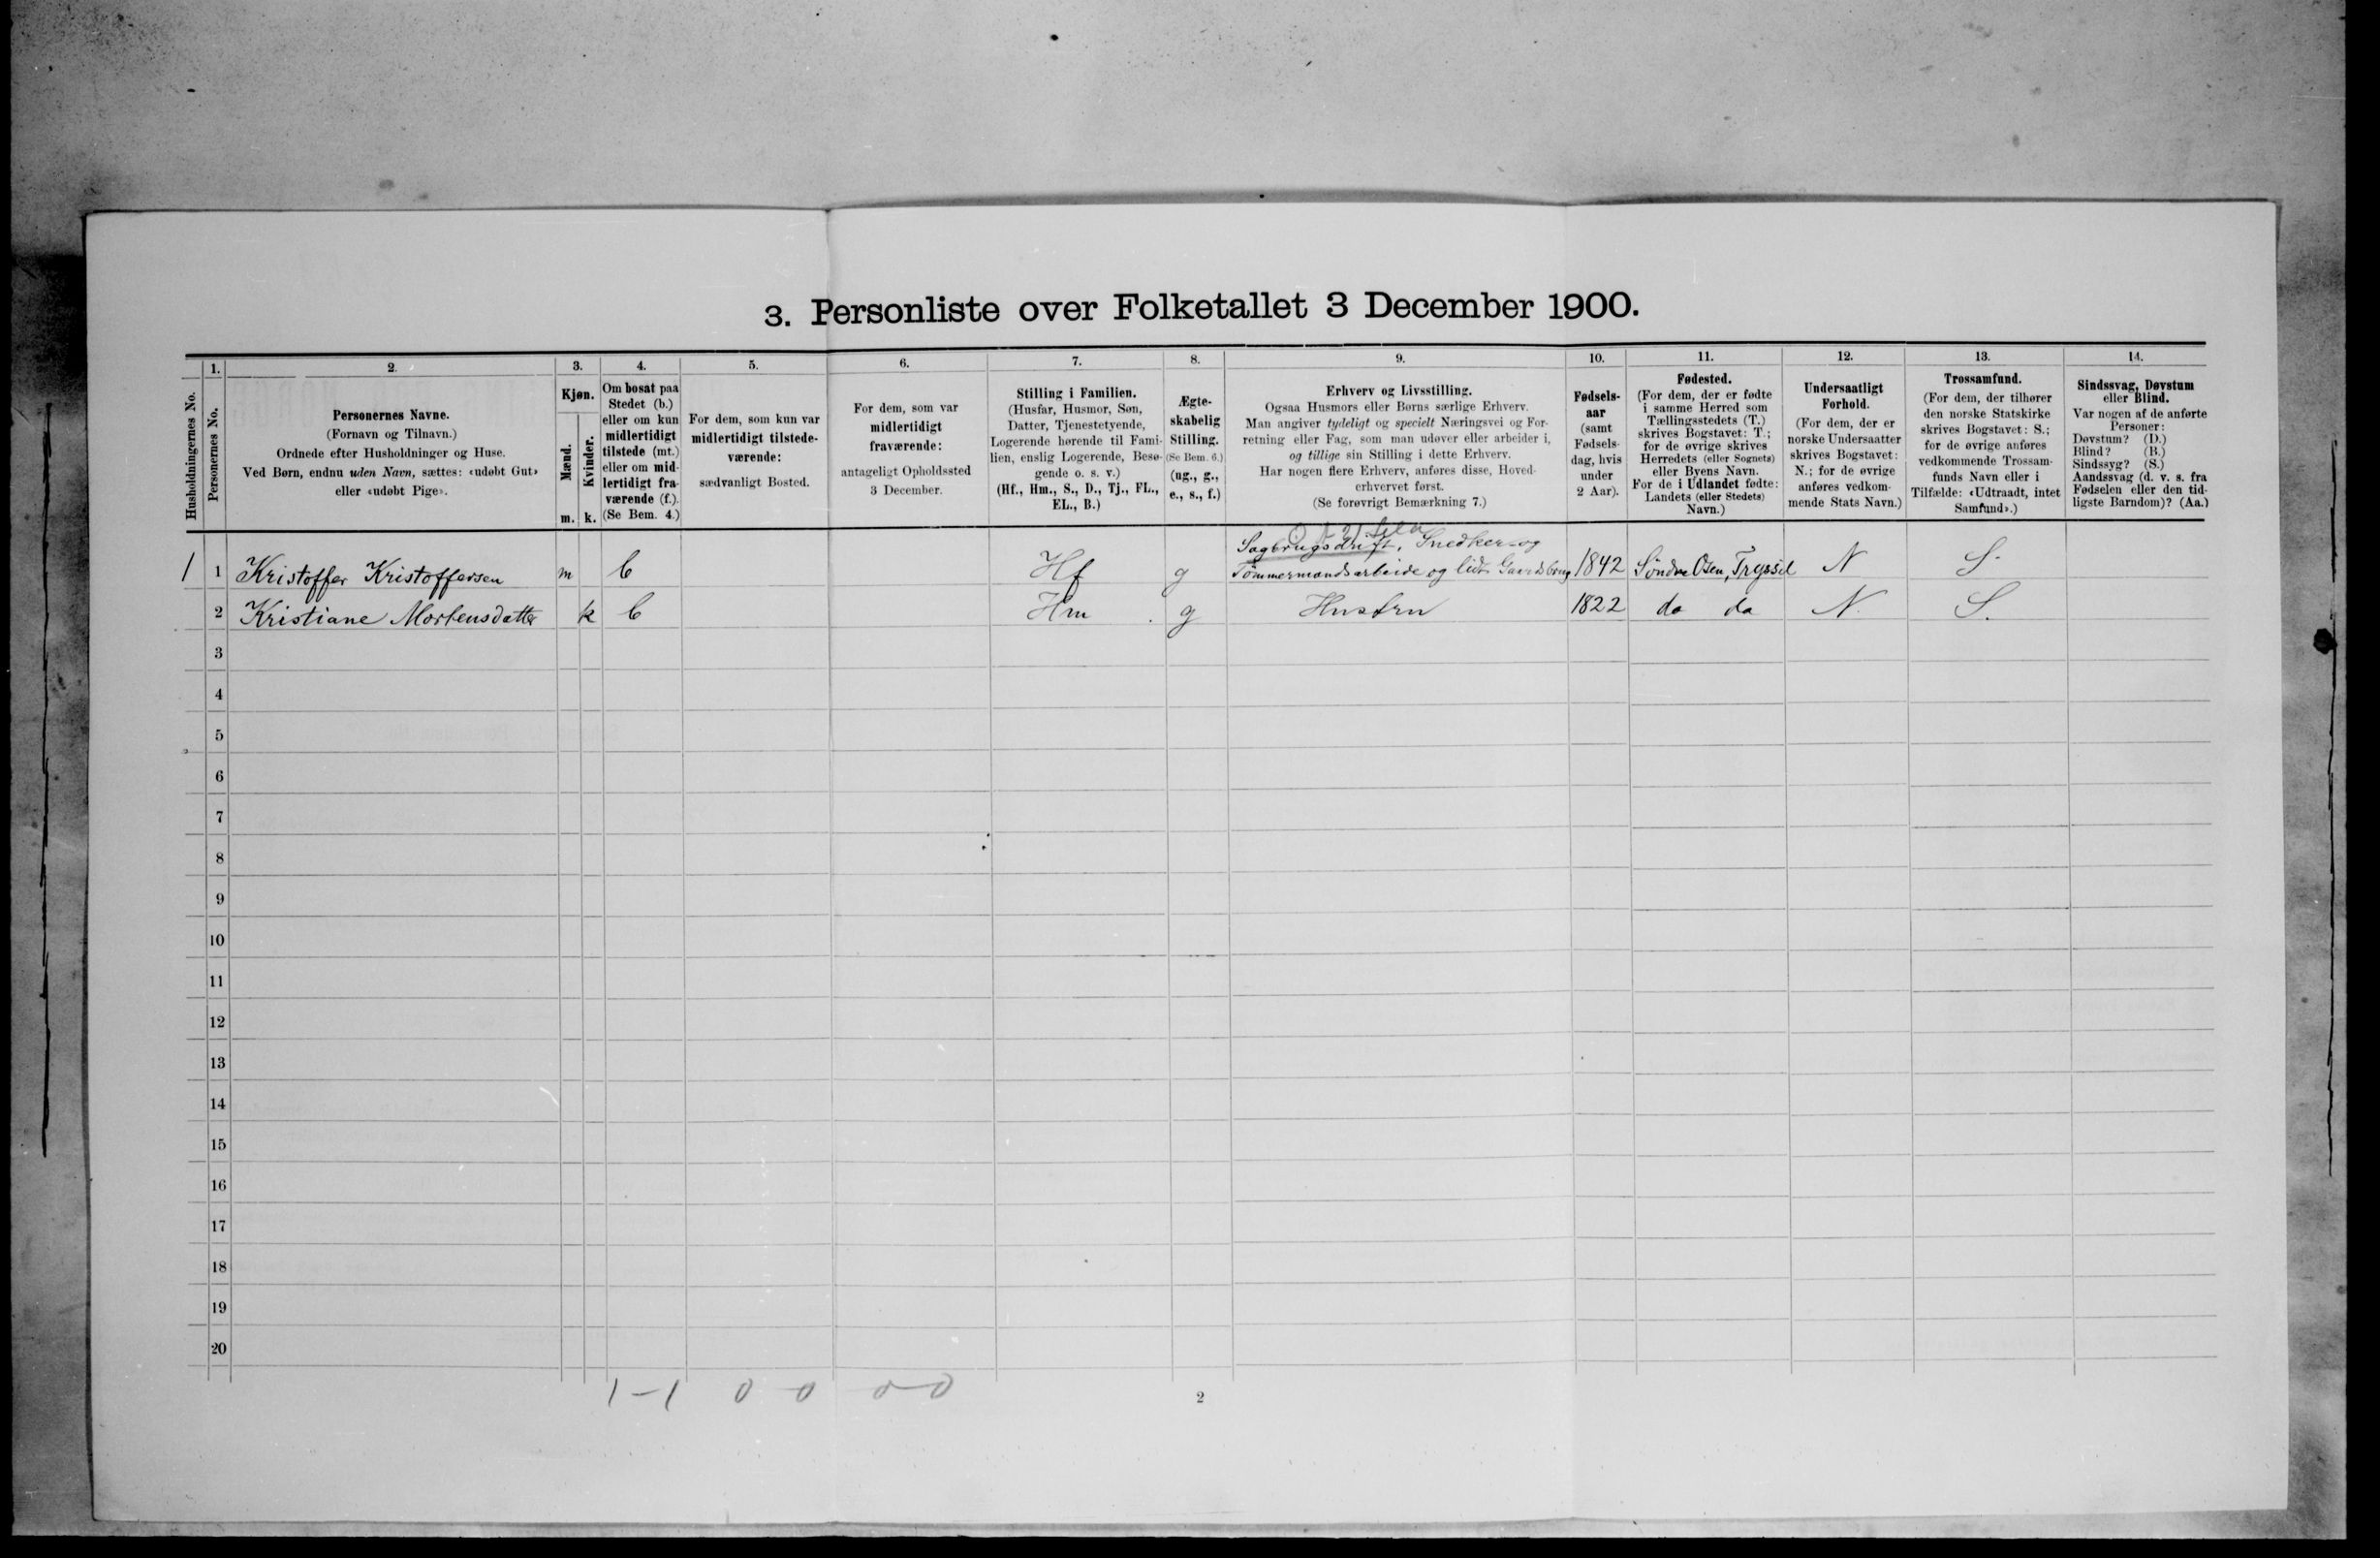 3. Personliste over Folketallet 3 December 1900.
Husholdningernes No.
1.
Personernes No.
2.
Personernes Navne.
(Fornavn og Tilnavn.)
Ordnede efter Husholdninger og Huse.
Ved Børn, endnu uden Navn, sættes: «udøbt Gut»
eller «udøbt Pige».
3.
Kjøn.
Mænd.
Kvinder.
m. k.
4.
Om bosat paa
Stedet (b.)
eller om kun
midlertidigt
tilstede (mt.)
eller om mid-
lertidigt fra-
værende (f.).
(Se Bem. 4.)
5.
For dem, som kun var
midlertidigt tilstede-
værende:
sædvanligt Bosted.
6.
For dem, som var
midlertidigt
fraværende:
antageligt Opholdssted
3 December.
7.
Stilling i Familien.
(Husfar, Husmor, Søn,
Datter, Tjenestetyende,
Logerende hørende til Fami-
lien, enslig Logerende, Besø-
gende o. s. v.)
(Hf., Hm., S., D., Tj., FL.,
EL., B.)
8.
Ægte-
skabelig
Stilling.
(Se Bem. 6.)
(ug., g.,
e., s., f.)
9.
Erhverv og Livsstilling.
Ogsaa Husmors eller Børns særlige Erhverv.
Man angiver tydeligt og specielt Næringsvei og For-
retning eller Fag, som man udøver eller arbeider i,
og tillige sin Stilling i dette Erhverv.
Har nogen flere Erhverv, anføres disse, Hoved-
erhvervet først.
(Se forøvrigt Bemærkning 7.)
10.
Fødsels-
aar
(samt
Fødsels-
dag, hvis
under
2 Aar).
11.
Fødested.
(For dem, der er fødte
i samme Herred som
Tællingsstedets (T.)
skrives Bogstavet: T.;
for de øvrige skrives
Herredets (eller Sognets)
eller Byens Navn.
For de i Udlandet fødte:
Landets (eller Stedets)
Navn.)
12.
Undersaatligt
Forhold.
(For dem, der er
norske Undersaatter
skrives Bogstavet:
N.; for de øvrige
anføres vedkom-
mende Stats Navn.)
13.
Trossamfund.
(For dem, der tilhører
den norske Statskirke
skrives Bogstavet: S.;
for de øvrige anføres
vedkommende Trossam-
funds Navn eller i
Tilfælde: «Udtraadt, intet
Samfund».)
14.
Sindssvag, Døvstum
eller Blind.
Var nogen af de anførte
Personer:
Døvstum? (D.)
Blind? (B.)
Sindssyg? (S.)
Aandssvag (d. v. s. fra
Fødselen eller den tid-
ligste Barndom)? (Aa.)
Sagbrugsdrift, Snedker- og
1 1 Kristoffer Kristoffersen m b Hf g Tömmermandsarbeide og lidt Gaardsbrug 1842 Söndre Osen, Trysil N S.
2 Kristiane Mortensdatter k b Hm g Hustru 1822 do do N. S.
3
4
5
6
7
8
9
10
11
12
13
14
15
16
17
18
19
20
1-1 0 0 0-0
2